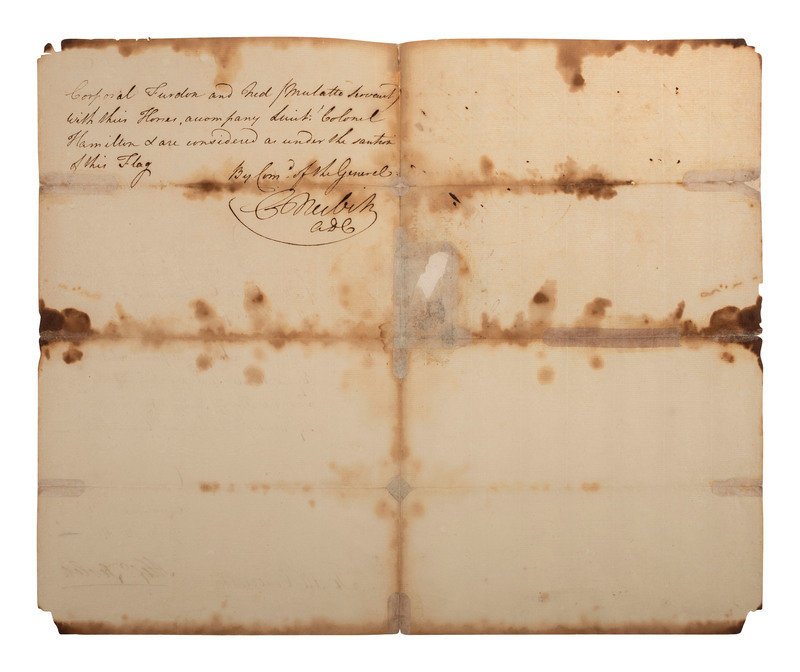 Corporal Turdon and Ned (Mulatto Servant)
with thier Horses, accompany Lieut.t Colonel
Hamilton & are considered as under the santion
of this Flag
By Com.d of the General
ADC